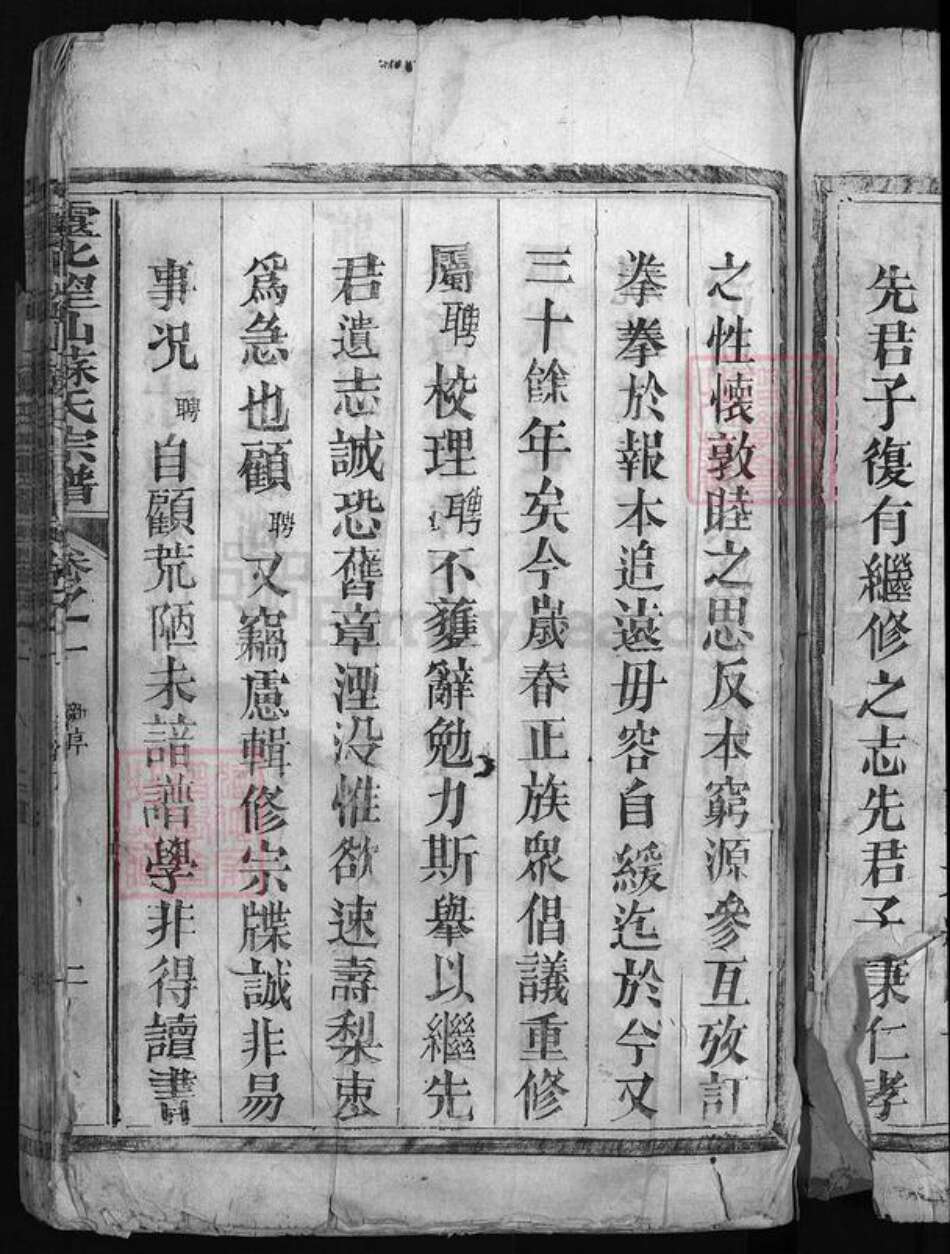 先君子復有繼修之志先君子秉仁孝
之性懷敦睦之思反本窮源參互攷訂
拳拳於報本追遠毋容自緩迄於今又
三十餘年矣今歲春正族眾倡議重修
屬聘校理聘不獲辭勉力斯舉以繼先
君遺志誠恐舊章湮沒惟欲速壽梨棗
為急也顧聘又竊慮輯修宗牒誠非易
事況聘自顧荒陋未諳譜學非得讀書
望仙蘇氏宗譜 卷之一 新序 二